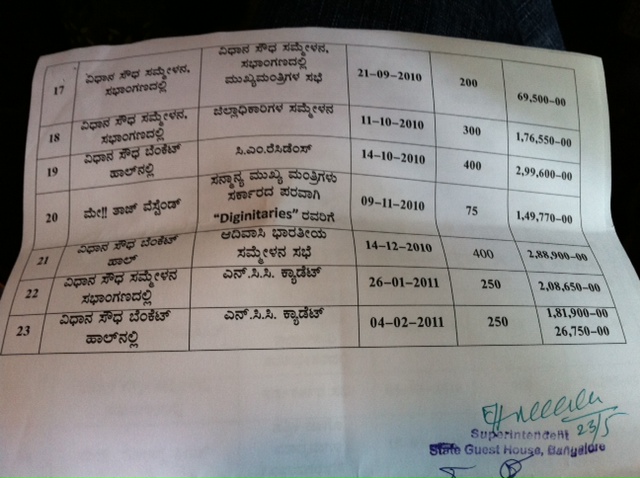 17 ವಿಧಾನ ಸೌಧ ಸಮ್ಮೇಳನ, ವಿಧಾನ ಸೌಧ ಸಮ್ಮೇಳನ, 21-09-2010 200 69,500-00
ಸಭಾಂಗಣದಲ್ಲಿ ಸಭಾಂಗಣದಲ್ಲಿ
ಮುಖ್ಯಮಂತ್ರಿಗಳ ಸಭೆ
18 ವಿಧಾನ ಸೌಧ ಸಮ್ಮೇಳನ, ಜಿಲ್ಲಾಧಿಕಾರಿಗಳ ಸಮ್ಮೇಳನ 11-10-2010 300 1,76,550-00
ಸಭಾಂಗಣದಲ್ಲಿ
19 ವಿಧಾನ ಸೌಧ ಬೆಂಕೆಟ್ ಸಿ.ಎಂ.ರೆಸಿಡೆಂಸ್ 14-10-2010 400 2,99,600-00
ಹಾಲ್‌ನಲ್ಲಿ
20 ಮೇ!! ತಾಜ್ ವೆಸ್ಟೆಂಡ್ ಸನ್ಮಾನ್ಯ ಮುಖ್ಯ ಮಂತ್ರಿಗಳು 09-11-2010 75 1,49,770-00
ಸರ್ಕಾರದ ಪರವಾಗಿ
"Diginitaries" ರವರಿಗೆ
21 ವಿಧಾನ ಸೌಧ ಬೆಂಕೆಟ್ ಆದಿವಾಸಿ ಭಾರತೀಯ 14-12-2010 400 2,88,900-00
ಹಾಲ್ ಸಮ್ಮೇಳನ ಸಭೆ
22 ವಿಧಾನ ಸೌಧ ಸಮ್ಮೇಳನ ಎನ್.ಸಿ.ಸಿ. ಕ್ಯಾಡೆಟ್ 26-01-2011 250 2,08,650-00
ಸಭಾಂಗಣದಲ್ಲಿ
23 ವಿಧಾನ ಸೌಧ ಬೆಂಕೆಟ್ ಎನ್.ಸಿ.ಸಿ. ಕ್ಯಾಡೆಟ್ 04-02-2011 250 1,81,900-00
ಹಾಲ್‌ನಲ್ಲಿ 26,750-00
23/5
Superintendent
State Guest House, Bangalore